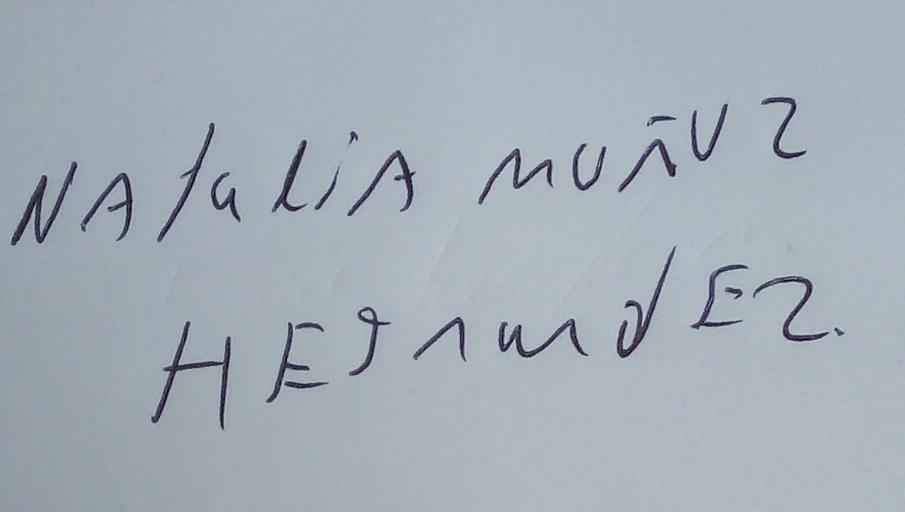 NATALIA MUÑUZ
HERNANDEZ.